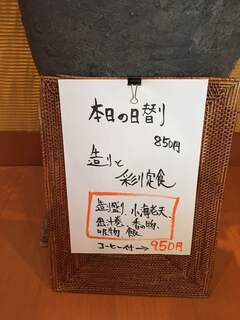 本日の日替り
850円
造りと
彩り定食
造り盛り、小海老天、
出汁巻、香の物、
吸物、飯
コーヒー付→950円